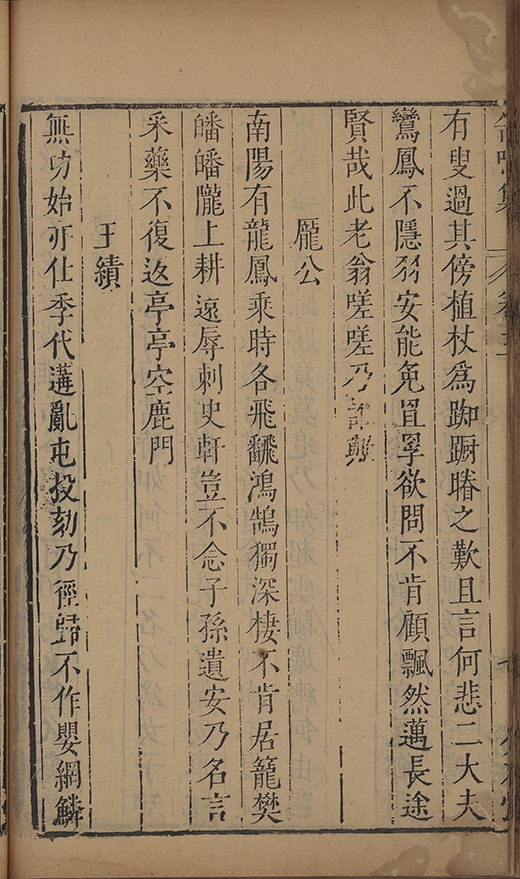 集
有叟過其傍植杖爲踟蹰睠之歎且言何悲二大夫
鸞鳳不隱羽安能免罝罦欲問不肯顧飄然邁長途
賢哉此老翁嗟嗟乃
龐公
南陽有龍鳳乘時各飛飜鴻鵠獨深棲不肯居籠樊
皤皤隴上耕遠辱刺史軒豈不念子孫遺安乃名言
采藥不復返亭亭空鹿門
王績
無功始亦仕季代遘亂屯投劾乃徑歸不作嬰網鱗